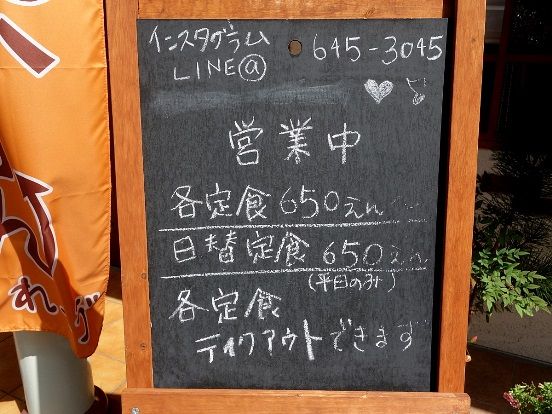 インスタグラム 645-3045
LINE@
営業中
各定食 650えん
日替定食 650えん
(平日のみ)
各定食
テイクアウトできます